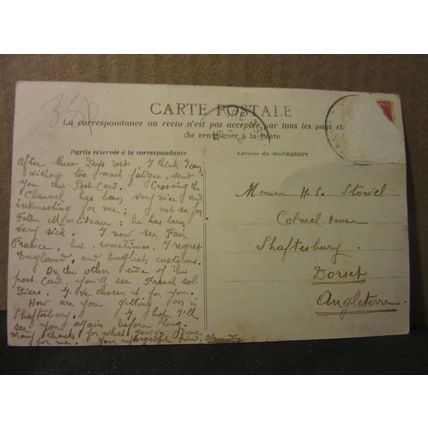 CARTE POSTALE
La correspondance au recto n'est pas acceptée par tous les pays
(Se renseigner à la Poste
Partie réservée à la correspondance
Adresse du destinataire
After three days rest, I think I can,
without too much fatigue, send
you this Post-Card. Crossing the
Channel has been very nice and
interesting for me; not so for
Father ; he has been
very sick. I now see Fair
France, but sometimes I regret
England, and English customs.
On the other side of this
post-card, you'll see French Sol-
diers. I've chosen it for you.
How are you getting on in
Shaftesbury. I hope I'll
see you again before long.
Many thanks for what you've done
for me. Your friend,
Monsieur H. S. Stowel
House
Shaftesbury
Dorset
Angleterre